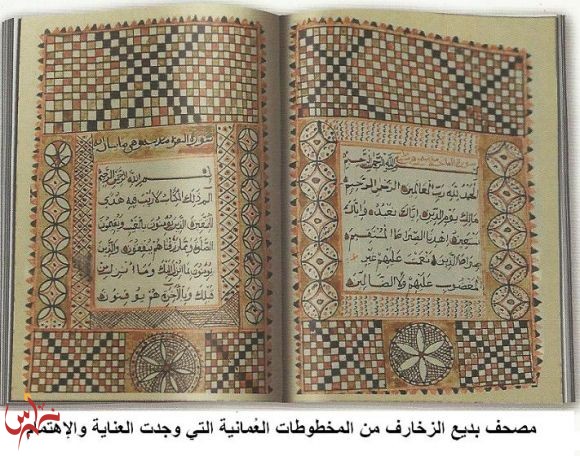 سورة الفاتحة
بسم الله الرحمن الرحيم
الحمد لله رب العالمين الرحمن الرحيم
مالك يوم الدين إياك نعبد وإياك
نستعين اهدنا الصراط المستقيم
صراط الذين أنعمت عليهم غير
المغضوب عليهم ولا الضالين
سورة البقرة مدنية وهي مايتان
بسم الله الرحمن الرحيم
الم ذلك الكتاب لا ريب فيه هدى
للمتقين الذين يؤمنون بالغيب ويقيمون
الصلوة ومما رزقناهم ينفقون والذين
يؤمنون بما انزل اليك وما انزل من
قبلك وبالاخرة هم يوقنون
مصحف بديع الزخارف من المخطوطات العُمانية التي وجدت العناية والإهتمام
نبراس